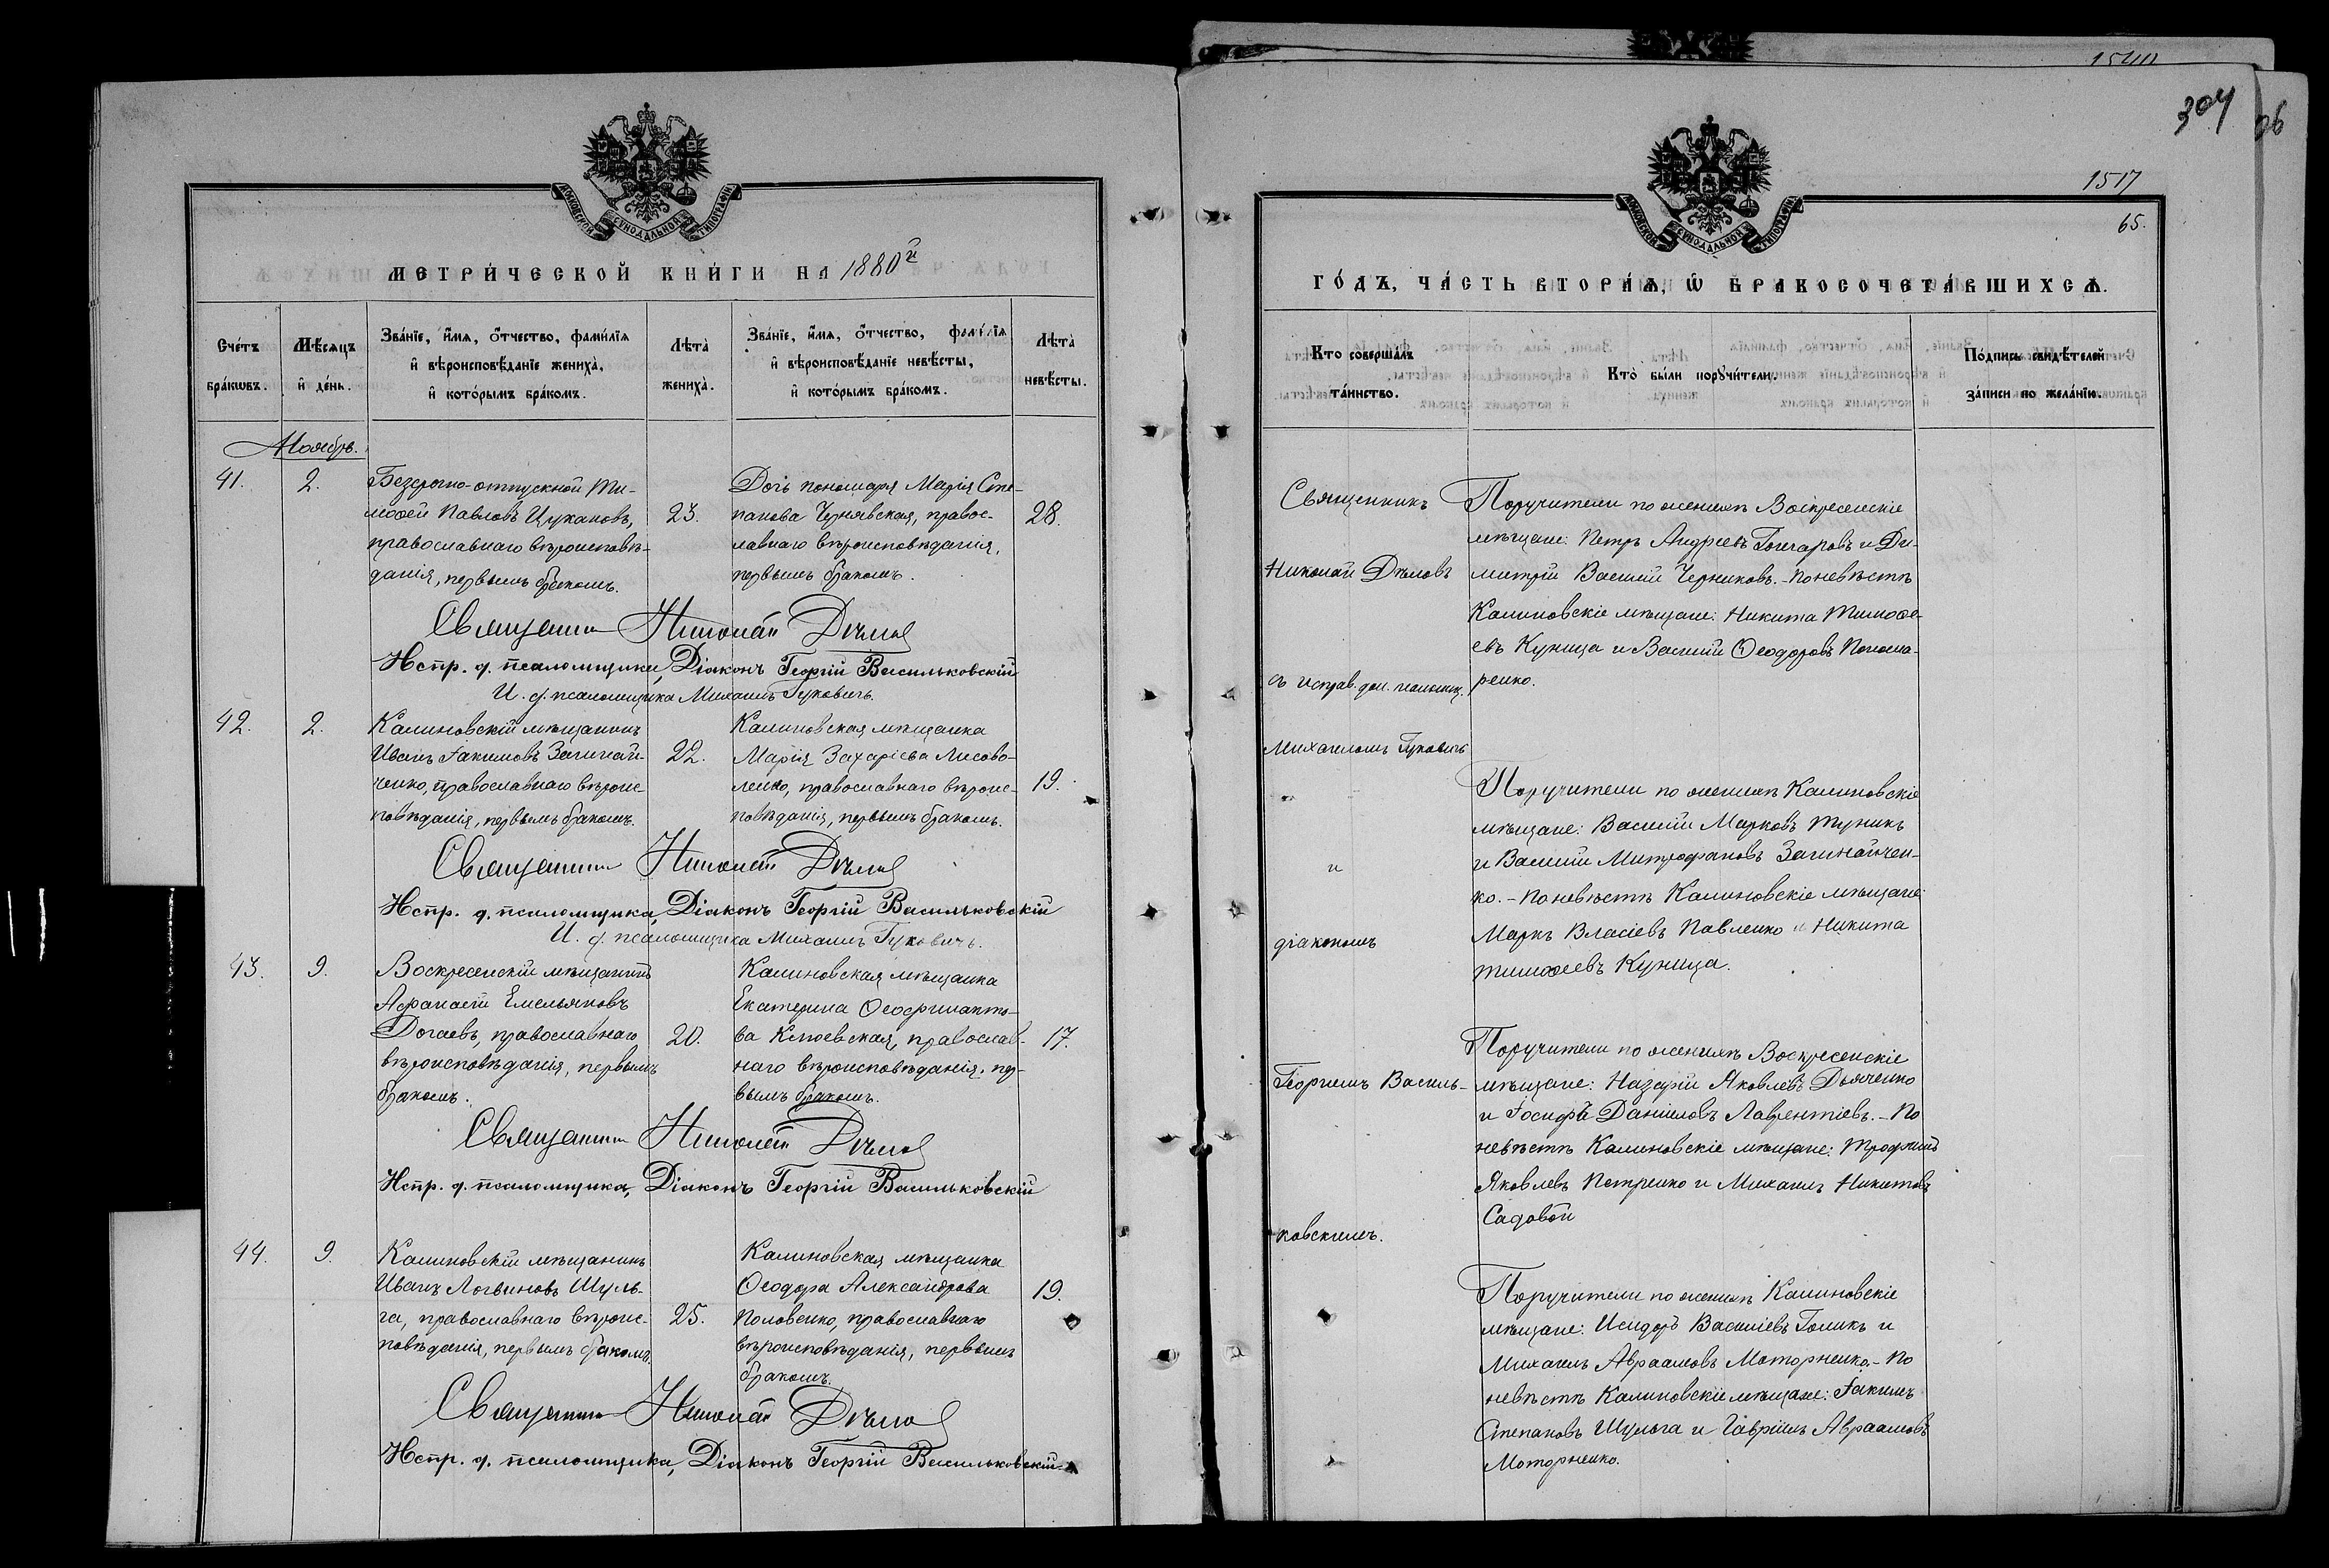 1540
304
96
МОСКОВСКОЙ СѴНОДАЛЬНОЙ ТИПОГРАФІИ
МЕТРИ́ЧЕСКОЙ КНИ́ГИ НА 1880й
Сче́тъ бра́кѡвъ.
Мѣ́сяцъ и҆ де́нь.
Зва́нїе, и҆́мѧ, ѻ҆́тчество, фами́лїѧ
и҆ вѣроисповѣ́данїе жениха̀,
и҆ кото́рымъ бра́комъ.
Лѣта̀ жениха̀.
Зва́нїе, и҆́мѧ, ѻ҆́тчество, фами́лїѧ
и҆ вѣроисповѣ́данїе невѣ́сты,
и҆ кото́рымъ бра́комъ.
Лѣта̀ невѣ́сты.
Ноябрь.
41.
2.
Безсрочно-отпускной Ти-
моѳей Павловъ Цукановъ,
православнаго вѣроисповѣ-
данія, первымъ бракомъ.
23.
Дочь пономаря Марія Сте-
панова Чернявская, правос-
лавнаго вѣроисповѣданія,
первымъ бракомъ.
28.
Священникъ Николай Дѣловъ
Испр. д. псаломщика, Діаконъ Георгій Васильковскій
И. д. псаломщика Михаилъ Гуковичъ.
42.
2.
Калиновскій мѣщанинъ
Иванъ Іакимовъ Загинай-
ченко, православнаго вѣроис-
повѣданія, первымъ бракомъ.
22.
Калиновская мѣщанка
Марія Захаріева Лисово-
ленко, православнаго вѣроис-
повѣданія, первымъ бракомъ.
19.
Священникъ Николай Дѣловъ
Испр. д. псаломщика, Діаконъ Георгій Васильковскій
И. д. псаломщика Михаилъ Гуковичъ.
43.
9.
Воскресенскій мѣщанинъ
Аѳанасій Емельяновъ
Догаевъ, православнаго
вѣроисповѣданія, первымъ
бракомъ.
20.
Калиновская мѣщанка
Екатерина Ѳеофилакто-
ва Клюевская, православ-
наго вѣроисповѣданія, пер-
вымъ бракомъ.
17.
Священникъ Николай Дѣловъ
Испр. д. псаломщика, Діаконъ Георгій Васильковскій
44.
9.
Калиновскій мѣщанинъ
Иванъ Логвиновъ Шуль-
га, православнаго вѣроис-
повѣданія, первымъ бракомъ.
25.
Калиновская мѣщанка
Ѳеодора Александрова
Половенко, православнаго
вѣроисповѣданія, первымъ
бракомъ.
19.
Священникъ Николай Дѣловъ
Испр. д. псаломщика, Діаконъ Георгій Васильковскій
МОСКОВСКОЙ СѴНОДАЛЬНОЙ ТИПОГРАФІИ
1517
65.
ГО́ДЪ, ЧА́СТЬ ВТОРА́Ѧ, Ѡ҆ БРАКОСОЧЕТА́ВШИХСѦ.
Кто̀ соверша́лъ
та́инство.
Кто̀ бы́ли порꙋчи́тели.
По́дпись свидѣ́телей
за́писи по жела́нїю.
Священникъ
Николай Дѣловъ
съ исправ. дол. псаломщ.
Михаиломъ Гуковичъ
и
діакономъ
Георгіемъ Василь-
ковскимъ.
Поручители по женихѣ Воскресенскіе
мѣщане: Петръ Андреевъ Гончаровъ и Ди-
митрій Василій Черниковъ. - По невѣстѣ
Калиновскіе мѣщане: Никита Тимоѳе-
евъ Куница и Василій Ѳеодоровъ Понома-
ренко.
Поручители по женихѣ Калиновскіе
мѣщане: Василій Марковъ Тупикъ
и Василій Митрофановъ Загинайчен-
ко. - По невѣстѣ Калиновскіе мѣщане:
Маркъ Власіевъ Павленко и Никита
Тимоѳеевъ Куница.
Поручители по женихѣ Воскресенскіе
мѣщане: Назарій Яковлевъ Дьяченко
и Іосифъ Даніиловъ Лаврентіевъ. - По
невѣстѣ Калиновскіе мѣщане: Трофимъ
Яковлевъ Петренко и Михаилъ Никитовъ
Садовой
Поручители по женихѣ Калиновскіе
мѣщане: Исидоръ Василіевъ Голикъ и
Михаилъ Авраамовъ Моторненко. - По
невѣстѣ Калиновскіе мѣщане: Іакимъ
Степановъ Шульга и Гавріилъ Авраамовъ
Моторненко.